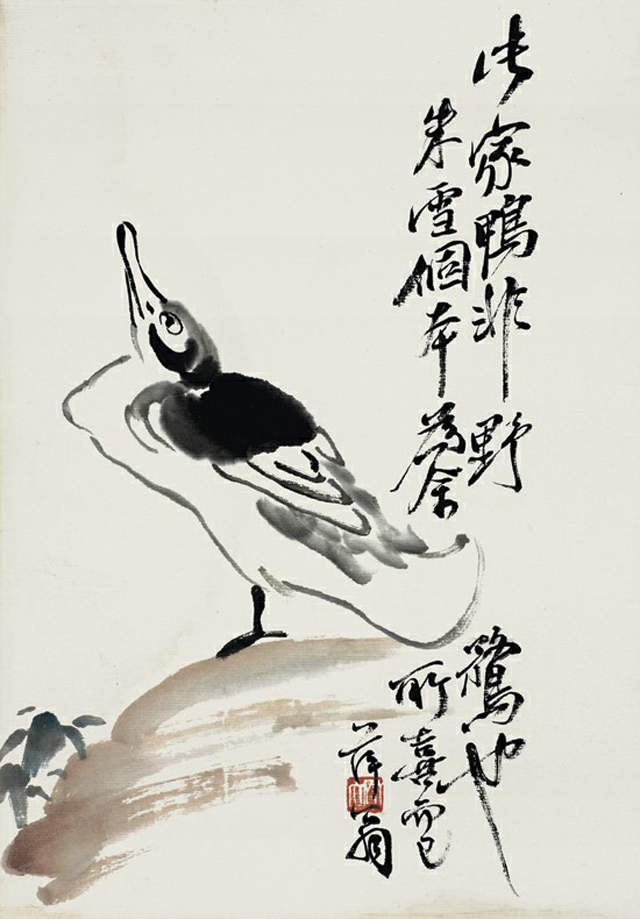 此家鴨非野鶩也
朱雪個本為余所喜而已
萍翁